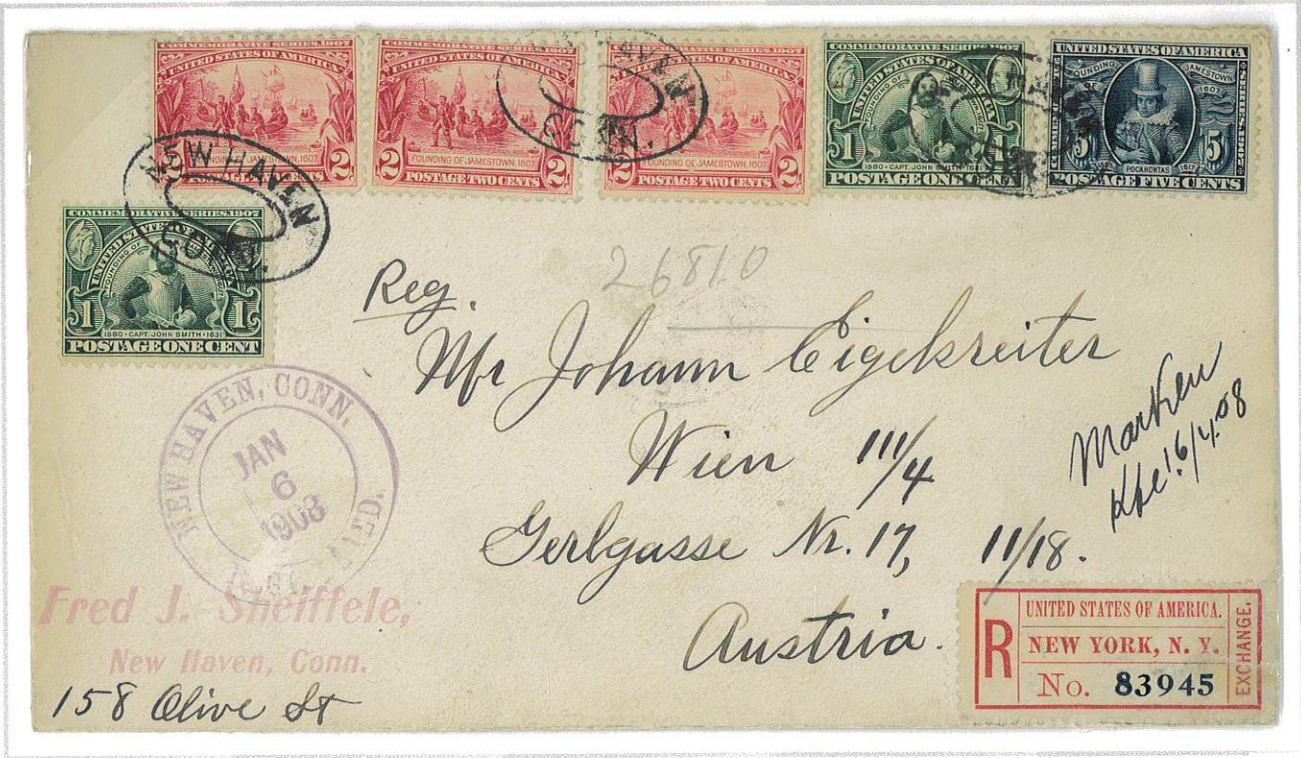 COMMEMORATIVE SERIES, 1907
UNITED STATES OF AMERICA
FOUNDING OF JAMESTOWN, 1607
2 2
POSTAGE TWO CENTS
COMMEMORATIVE SERIES, 1907
UNITED STATES OF AMERICA
FOUNDING OF JAMESTOWN, 1607
2 2
POSTAGE TWO CENTS
COMMEMORATIVE SERIES, 1907
UNITED STATES OF AMERICA
FOUNDING OF JAMESTOWN, 1607
2 2
POSTAGE TWO CENTS
COMMEMORATIVE SERIES 1907
UNITED STATES OF AMERICA
FOUNDING OF
1 1
1580 · CAPT. JOHN SMITH · 1631
POSTAGE ONE CENT
UNITED STATES OF AMERICA
FOUNDING OF JAMESTOWN
1607
5 5
POCAHONTAS 1617
POSTAGE FIVE CENTS
NEW HAVEN
CONN.
HAVEN
CONN.
COMMEMORATIVE SERIES, 1907
UNITED STATES OF AMERICA
FOUNDING OF
1 1
1580 · CAPT. JOHN SMITH · 1631
POSTAGE ONE CENT
26810
Reg.
Mr Johann Eigelsreiter
Wien 111/4
Gerlgasse Nr. 17, 11/18.
Austria.
Marken
16/4.08
NEW HAVEN, CONN.
JAN
6
1908
Fred J. Sheiffele,
New Haven, Conn.
158 Olive St
R
UNITED STATES OF AMERICA.
NEW YORK, N. Y.
No. 83945
EXCHANGE.